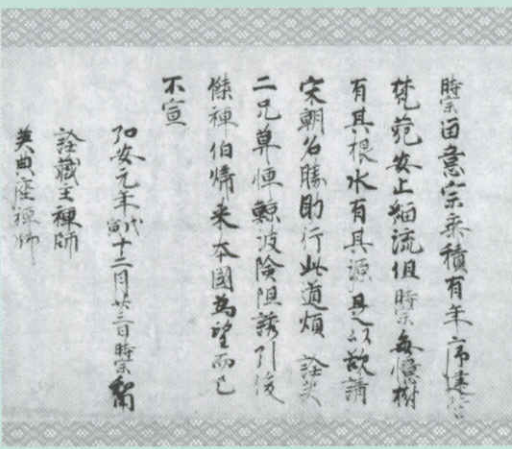 時宗留意宗乗積有年序建營
梵苑安止緇流但時宗每憶樹
有其根水有其源是以欲請
宋朝名勝助行此道煩詮英
二兄莫憚鯨波險阻誘引俊
傑禅伯歸来本國為望而已
不宣
弘安元年戊寅十二月廿三日時宗
詮藏主禅師
英典座禅師